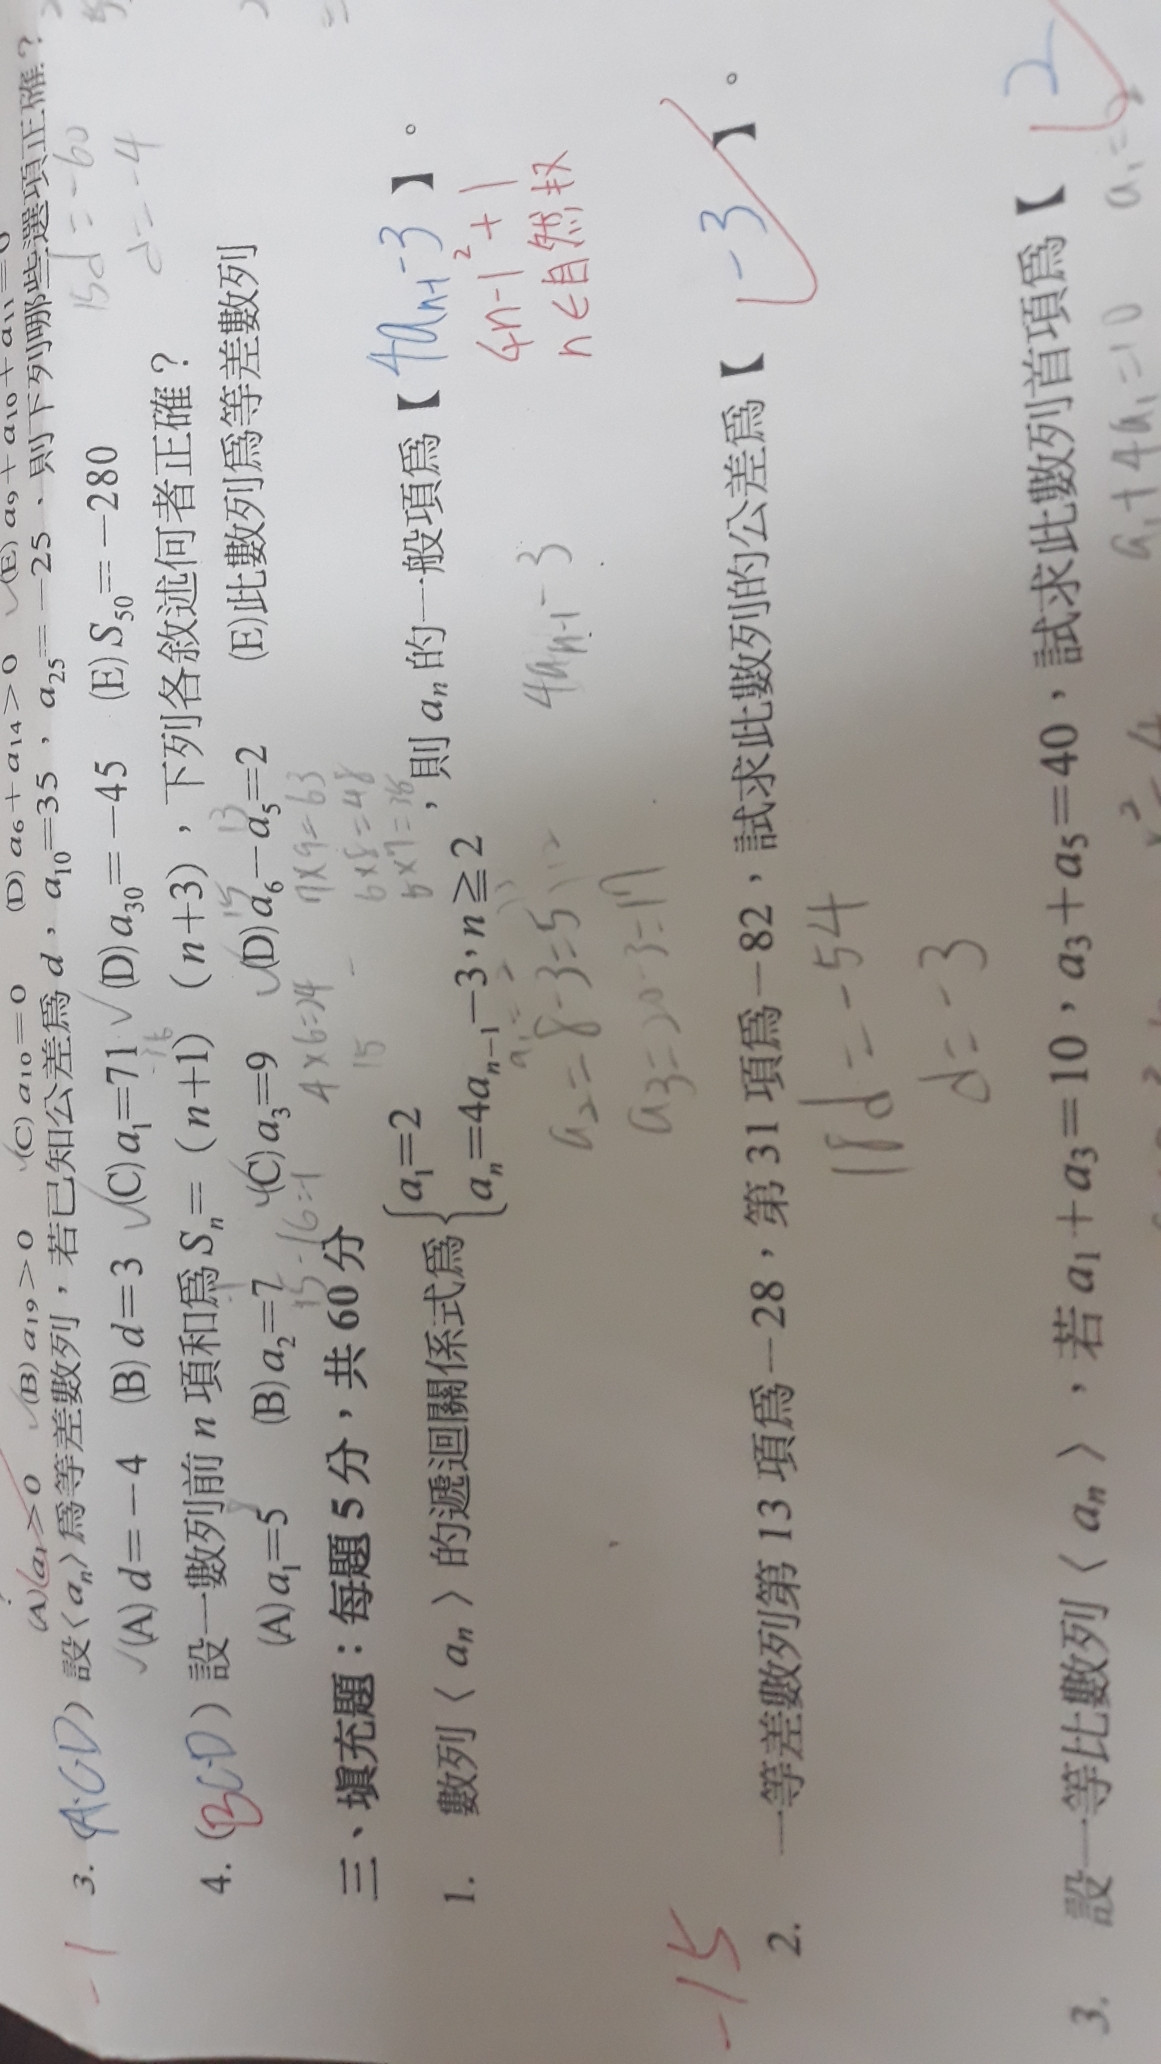 (A) a₁>0 (B) a₁₉>0 (C) a₁₀=0 (D) a₆+a₁₄>0 (E) a₉+a₁₀+a₁₁=0
3. (A.C.D) 設⟨aₙ⟩為等差數列，若已知公差為 d，a₁₀=35，a₂₅=-25、則下列哪些選項正確？
15d=-60
d=-4
(A) d=-4 (B) d=3 (C) a₁=71 (D) a₃₀=-45 (E) S₅₀=-280
4. (BCD) 設一數列前 n 項和為 Sₙ=（n+1）（n+3），下列各敘述何者正確？
(A) a₁=5 (B) a₂=7 (C) a₃=9 (D) a₆-a₅=2 (E) 此數列為等差數列
4×6=24
15
7×9=63
6×8=48
三、填充題：每題 5 分，共 60 分
1. 數列〈aₙ〉的遞迴關係式為 { a₁=2
aₙ=4aₙ₋₁-3，n≧2 ，則 aₙ 的一般項為【 4aₙ₋₁-3 】。
4ⁿ⁻¹+1
n∈自然数
4aₙ₋₁-3
a₂=8-3=5
a₃=20-3=17
-15
2. 一等差數列第 13 項為-28，第 31 項為-82，試求此數列的公差為【 -3 】。
18d=-54
d=-3
3. 設一等比數列〈aₙ〉，若 a₁+a₃=10，a₃+a₅=40，試求此數列首項為【 2
a₁+4a₁=10